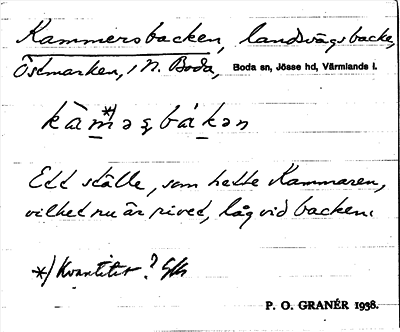 Kammersbacken, landsvägsbacke,
Östmarken, i N. Boda, Boda sn, Jösse hd, Värmlands l.
kàm*)əʂbákən
Ett ställe, som hette Kammaren,
vilket nu är rivet, låg vid backen.
*) Kvantitet?
P. O. GRANÉR 1938.